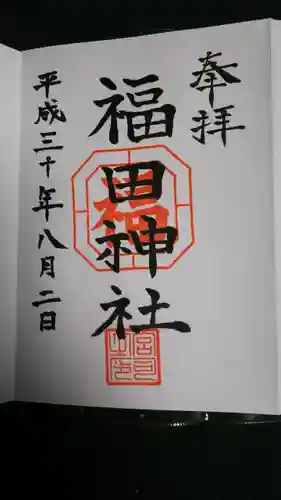 奉拝
福田神社
福
平成三十年八月二日